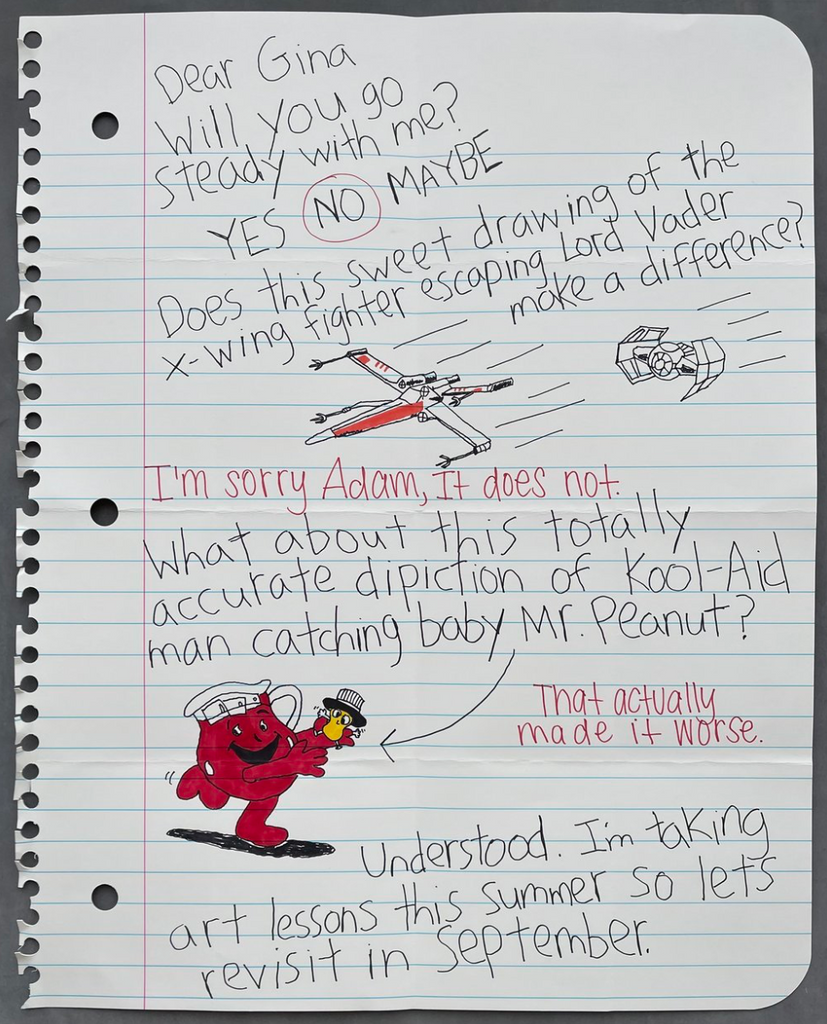 Dear Gina
Will you go
steady with me?
YES NO MAYBE
Does this sweet drawing of the
x-wing fighter escaping Lord Vader
make a difference?
I'm sorry Adam, It does not.
What about this totally
accurate dipiction of Kool-Aid
man catching baby Mr. Peanut?
That actually
made it worse.
Understood. I'm taking
art lessons this summer so let's
revisit in September.